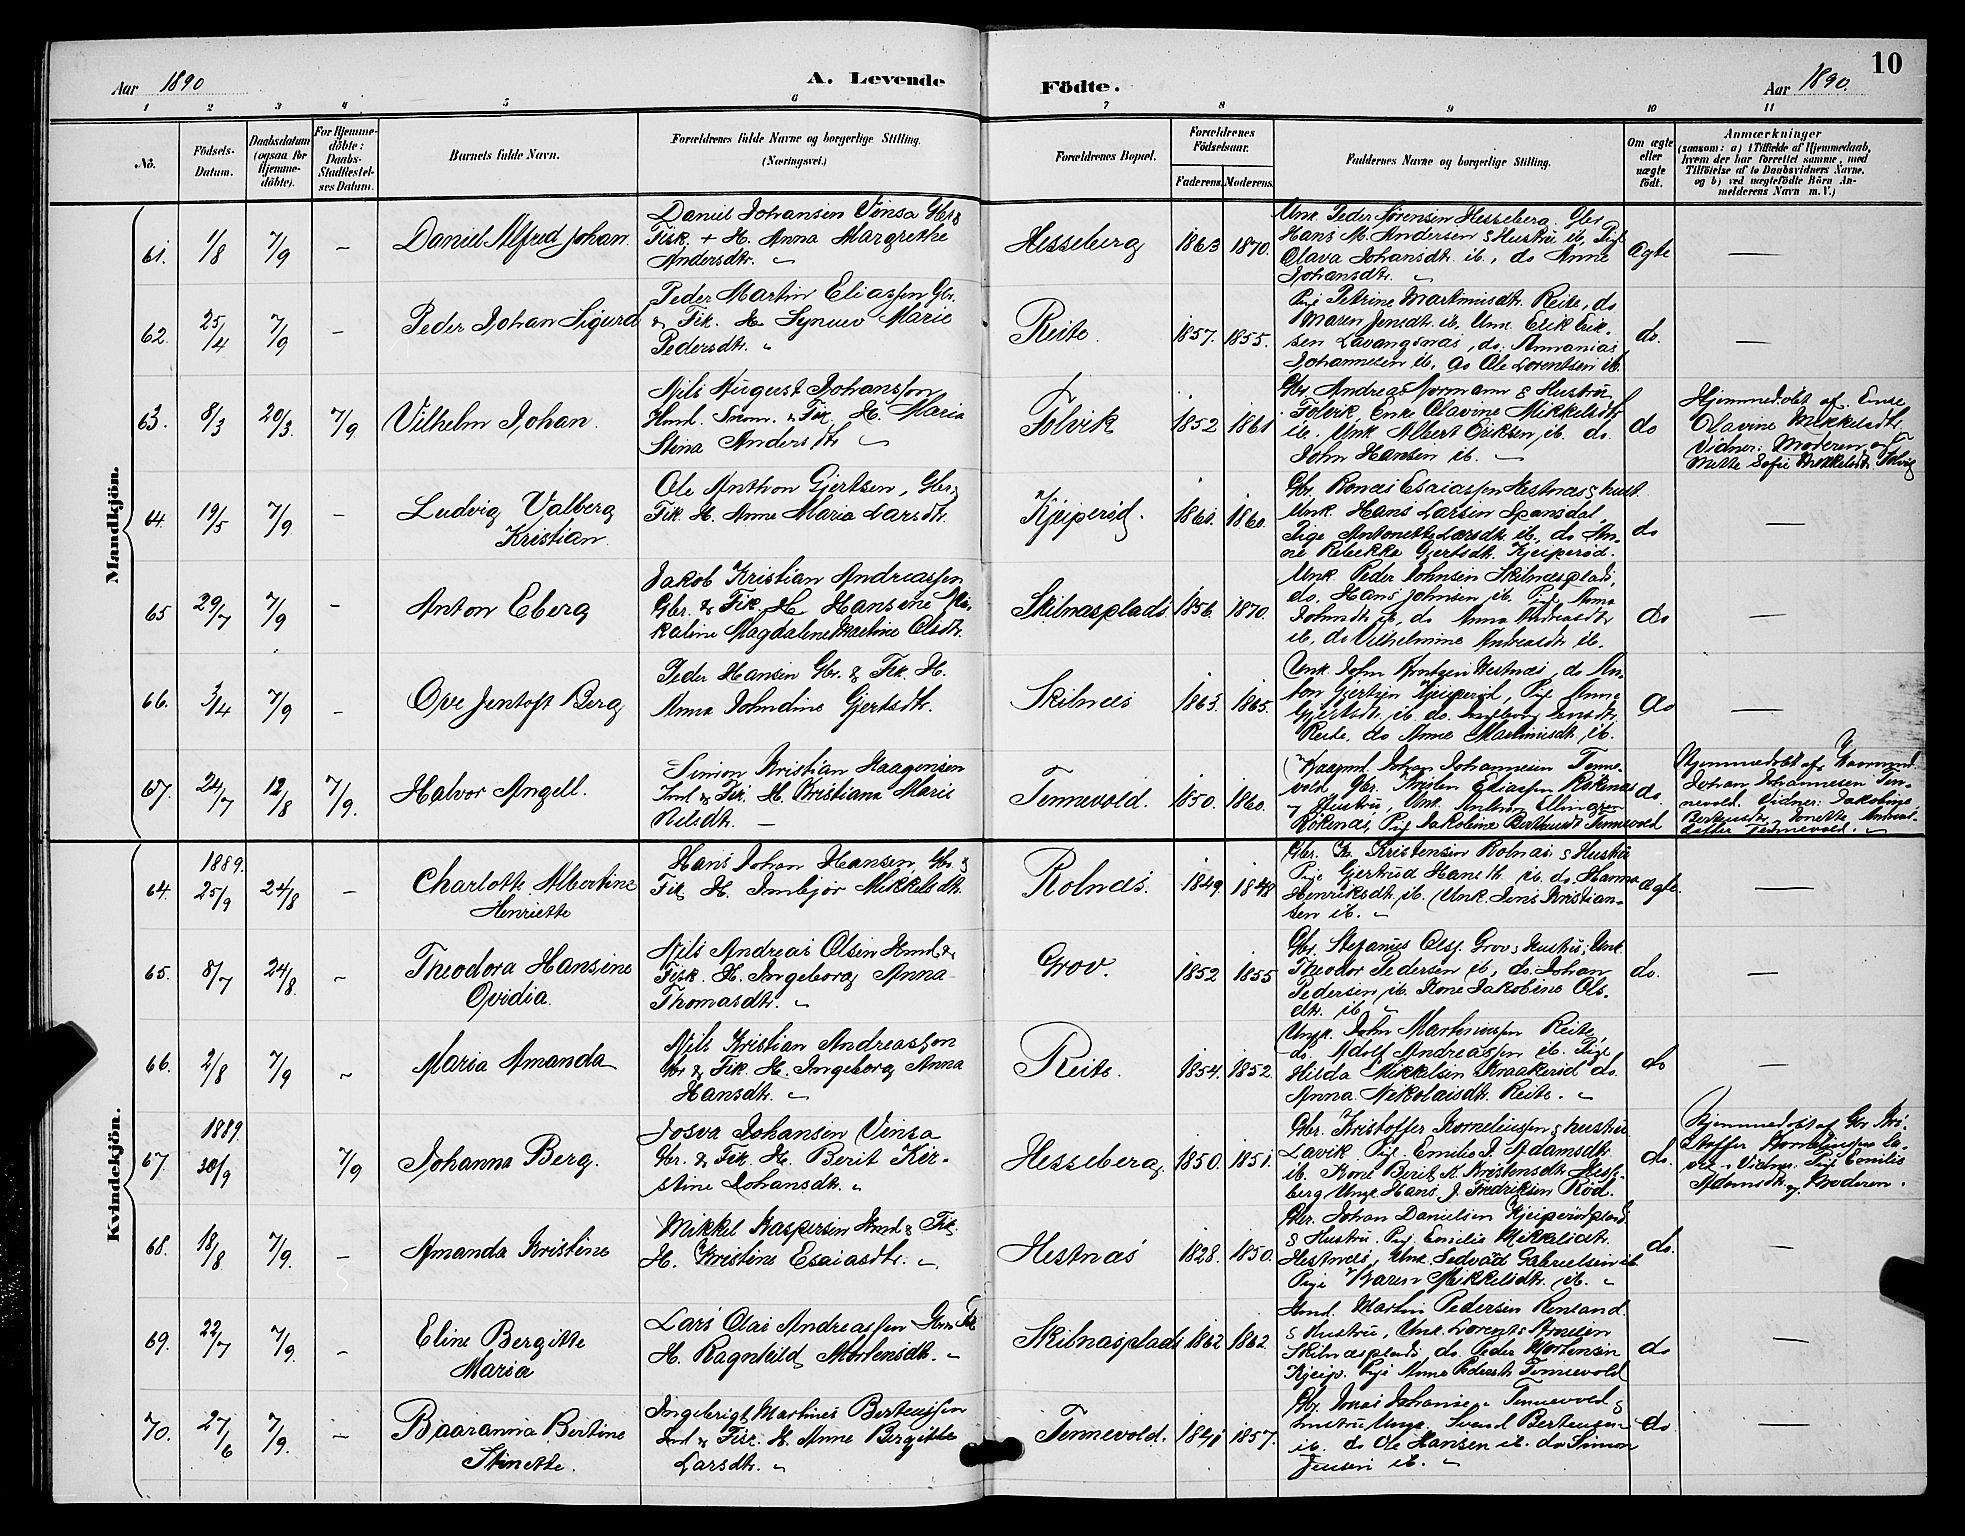 10
Aar 1890 A. Levende Födte. Aar 1890.
1 2 3 4 5 6 7 8 9 10 11
No.
Födsels-Datum.
Daabsdatum (ogsaa for Hjemme-döbte).
For Hjemme-döbte: Daabs-Stadfæstel-ses Datum.
Barnets fulde Navn.
Forældrenes fulde Navne og borgerlige Stilling.
(Næringsvei.)
Forældrenes Bopæl.
Forældrenes Födselsaar.
Faderens. Moderens.
Faddernes Navne og borgerlige Stilling.
Om ægte eller uægte födt.
Anmærkninger
(saasom: a) i Tilfælde af Hjemmedaab,
hvem der har forrettet samme, med
Tilföielse af to Daabsvidners Navne,
og b) ved uægtefödte Börn An-
melderens Navn m. V.)
Mandkjön.
61. 1/8 7/9 – Daniel Alfred Johan
Daniel Johansen Vinsa Gbr &
Fisk. + H. Anna Margrethe
Andersdtr.
Hesseberg 1863 1870.
Unk. Peder Sörensen Hesseberg. Gbr
Hans M. Andersen & Hustru ib, Pige
Olava Johansdtr. ib., do Anne
Johansdtr.
ægte —
62. 25/4 7/9 – Peder Johan Sigurd
Peder Martin Eliassen Gbr.
& Fik. H. Synnev Marie
Pedersdtr.
Reite. 1857. 1855.
Pige Petrine Martinusdtr. Reite, do
Maren Jensdtr ib, Unk. Erik Erik-
sen Lavangsnæs, do. Annanias
Johannesen ib, do Ole Lorentsen ib.
do. —
63. 8/3 20/3. 7/9 Vilhelm Johan.
Nils August Johanssen
Hmd. & Fik. H. Maria
Stina Andersdtr
Folvik 1852 1861
Gbr Andreas Normann & Hustru,
Folvik, Enke Olavine Mikkelsdtr
ib. Unk Albert Eriksen ib. do.
John Hansen ib.
do
Hjemmedöbt af Enke
Olavine Mikkelsdtr.
Vidner: Moderen og
Mette Sofie Mikkelsdtr Folvig
64. 19/5 7/9 – Ludvig Valberg
Kristian.
Ole Anthon Gjertsen, Gbr &
Fik. H. Anne Maria Larsdtr.
Kjeiperöd. 1861. 1860.
Gbr. Esaiassen Hestnæs & hust.
Unk. Hans Larsen Spansdal,
Pige Antonette Larsdtr. ib, do An-
ne Rebekka Gjertsdtr. Kjeiperöd.
do —
65 29/7 7/9 – Anton Eberg
Jakob Kristian Andreassen
Gbr. & Fik. H. Hansine Ni-
koline Magdalene Martine Olsdtr.
Skilnæsplads 1856. 1870.
Unk. Peder Johnsen Skilnæsplads,
do. Hans Johnsen ib. Pige Anna
Johnsdtr ib, do Anna Andreasdtr
ib, do Vilhelmine Andreasdtr ib.
do —
66. 3/4 7/9 – Ove Jentoft Berg
Peder Hansen Gbr. & Fik. H.
Anna Johndine Gjertsdtr.
Skilnæs 1863. 1865.
Unk. John Hestnæs, do An-
ton Gjertsen Kjeiperöd, Pige Anna
Gjertsdtr. ib. do. Ingeborg Jensdtr.
Reite, do Anne Martinusdtr. ib.
do —
67. 24/7 12/8 7/9. Halvor Angell.
Simon Kristian Haagensen
Inds & Fik. H. Kristiana Marie
Nilsdtr. —
Tennevold. 1850. 1860.
Johan Johannesen Tenne-
vold, Gbr. Kristen Eliassen Rökenæs
& Hustru, Unk. Anthon Ellingsen
Rökenæs, Pige Jakobine Bertheusdtr Tennevold
do.
Hjemmedöbt af
Johan Johannesen Ten-
nevold. Vidner: Jakobine
Berthеusdtr, Anette
datter Tennevold.
Kvindekjön.
64. 1889. 25/9 24/8 – Charlotte Albertine
Henriette
Hans Johan Hansen Gbr &
Fik H. Innbjör Mikkelsdtr.
Rolnæs. 1849. 1848
Gbr. Kristensen Rolnæs & Hustru
Pige Gjertrud ib. do. Hanna
Henriksdtr. ib. Unk. Jens Kristian-
sen ib.
ægte. —
65. 8/7 24/8. – Theodora Hansine
Ovidia.
Nils Andreas Olsen Hmd. &
Fisk. H. Ingeborg Anna
Thomasdtr.
Grov. 1852 1855
Gbr. Stefanus Ols. Grov & Hustru, Unk.
Theodor Pedersen ib, do. Johan
Pedersen ib. Kone Jakobine Ols-
dtr. ib
do. —
66. 2/8 7/9 – Maria Amanda
Nils Kristian Andreassen
Gbr & Fik. H. Ingeborg Anna
Hansdtr.
Reite. 1854. 1852.
Ungk. John Martinussen Reite,
do. Adolf Andreassen ib. Pige
Hilda Mikkelsen Kraakeröd do.
Anna Nikolaisdtr. Reite.
do —
67. 1889. 30/9 7/9 Johanna Berg.
Josva Johansen Vinsa
Gbr. & Fik. H. Berit Kir-
stine Johansdtr.
Hesseberg 1850. 1851.
Gbr. Kristoffer Korneliussen & hustru
Lavik Pige. Emilie J. Adamsdtr.
ib. Kone Berit K. Kristensdtr. Hesse-
berg Ungk. Hans J. Fredriksen Röd.
do.
Hjemmedöbt af Gbr Kri-
stoffer Korneliussen La-
vik. Vidner. Pige Emilie
Adamsdtr og Moderen.
68. 18/8 7/9. – Amanda Kristine
Mikkel Kaspersen Hmd & Fik.
H. Kristine Esaiasdtr.
Hestnæs 1828. 1850.
Gbr. Johan Danielsen Kjeiperödplads
& Hustru. Pige Emilie Mikkelsdtr.
Hestnæs, Unk. Sedvad Gabrielsen ib
Pige Karen Mikkelsdtr. ib.
do. —
69. 22/7 7/9. – Eline Bergitte
Maria
Lars Olai Andreassen Gbr & Fik
H. Ragnhild Mortensdtr.
Skilnæsplads 1862 1862.
Hmd. Martin Pedersen Renland
& Hustru, Unk. Lorents Arnesen
Skilnæsplads, do. Peder Mortensen
Kjeip. Pige Anne Pedersdtr Tennevold
do —
70. 27/6 7/9. – Baaranna Bertine
Stinette.
Ingebrigt Martines Berteussen
Ind & Fisk. H. Anne Bergitte
Larsdtr.
Tennevold. 1841 1857.
Gbr. Jonas Johanse. Tennevold &
hustru Ungk. Svend Berteussen
ib. do Ole Hansen ib. do Simon
Jensen ib.
do —